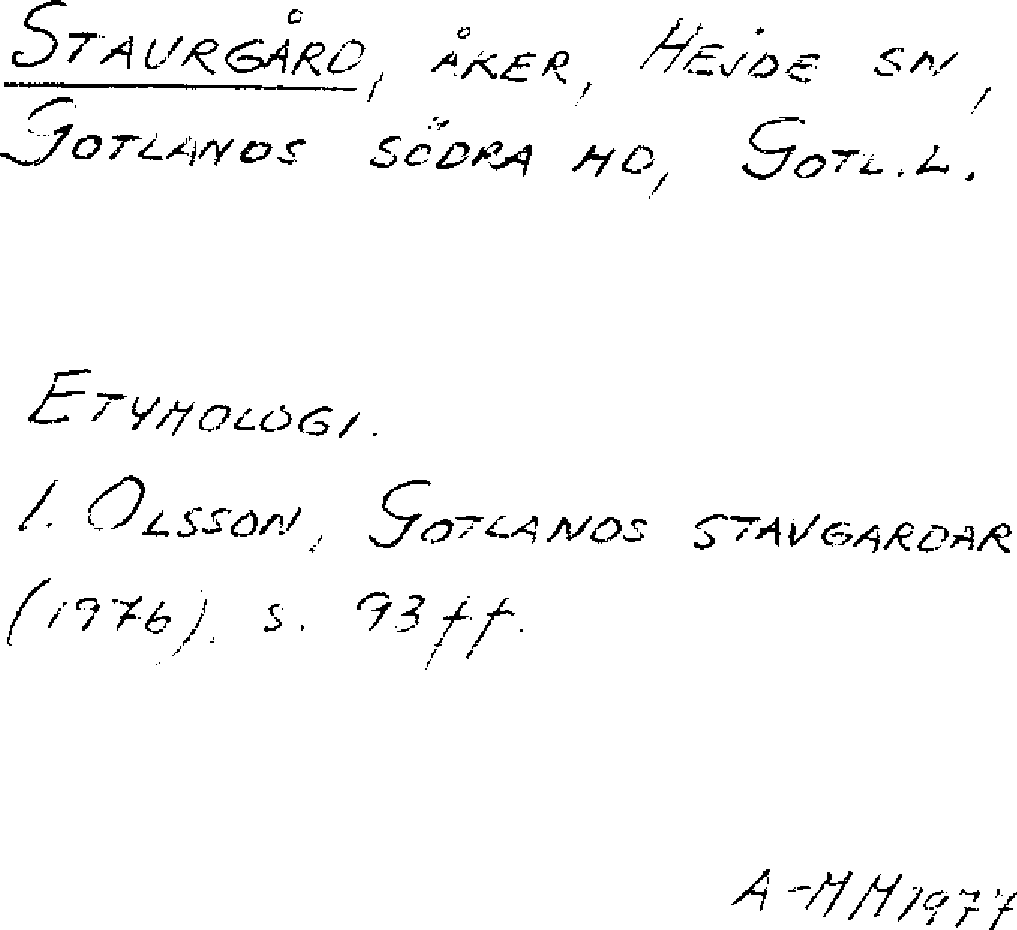 STAURGÅRD, ÅKER, HEJDE SN,
GOTLANDS SÖDRA HD, GOTL.L.
ETYMOLOGI.
I. OLSSON, GOTLANDS STAVGARDAR
(1976). S. 93 ff.
A-MM 1977